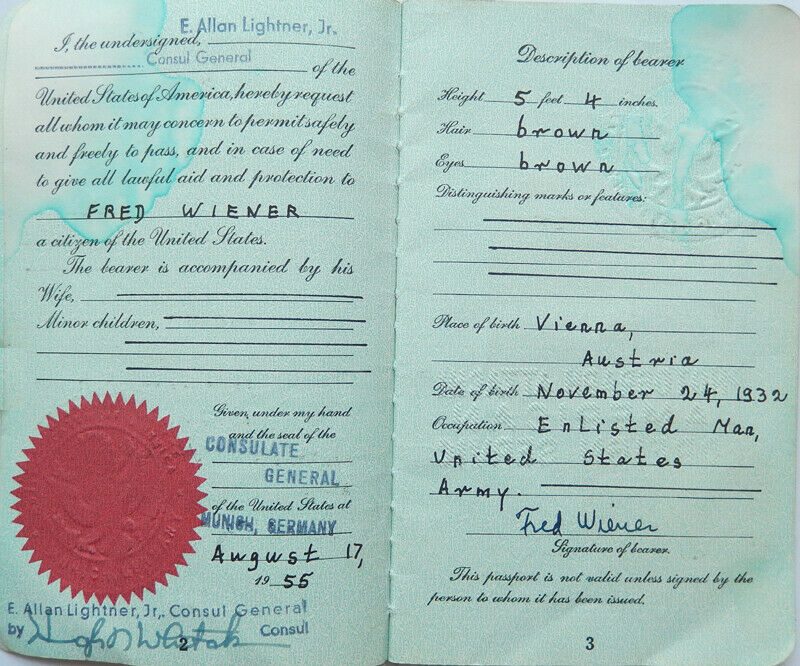 E. Allan Lightner, Jr.
I, the undersigned,
Consul General of the
United States of America, hereby request
all whom it may concern to permit safely
and freely to pass, and in case of need
to give all lawful aid and protection to
FRED WIENER
a citizen of the United States.
The bearer is accompanied by his
Wife,
Minor children,
Given, under my hand
and the seal of the
CONSULATE
GENERAL
of the United States at
MUNICH, GERMANY
August 17,
19 55
E. Allan Lightner, Jr. Consul General
by Consul
2
Description of bearer
Height 5 feet 4 inches.
Hair brown
Eyes brown
Distinguishing marks or features:
Place of birth Vienna,
Austria
Date of birth November 24, 1932
Occupation Enlisted Man,
United States
Army.
Fred Wiener
Signature of bearer.
This passport is not valid unless signed by the
person to whom it has been issued.
3